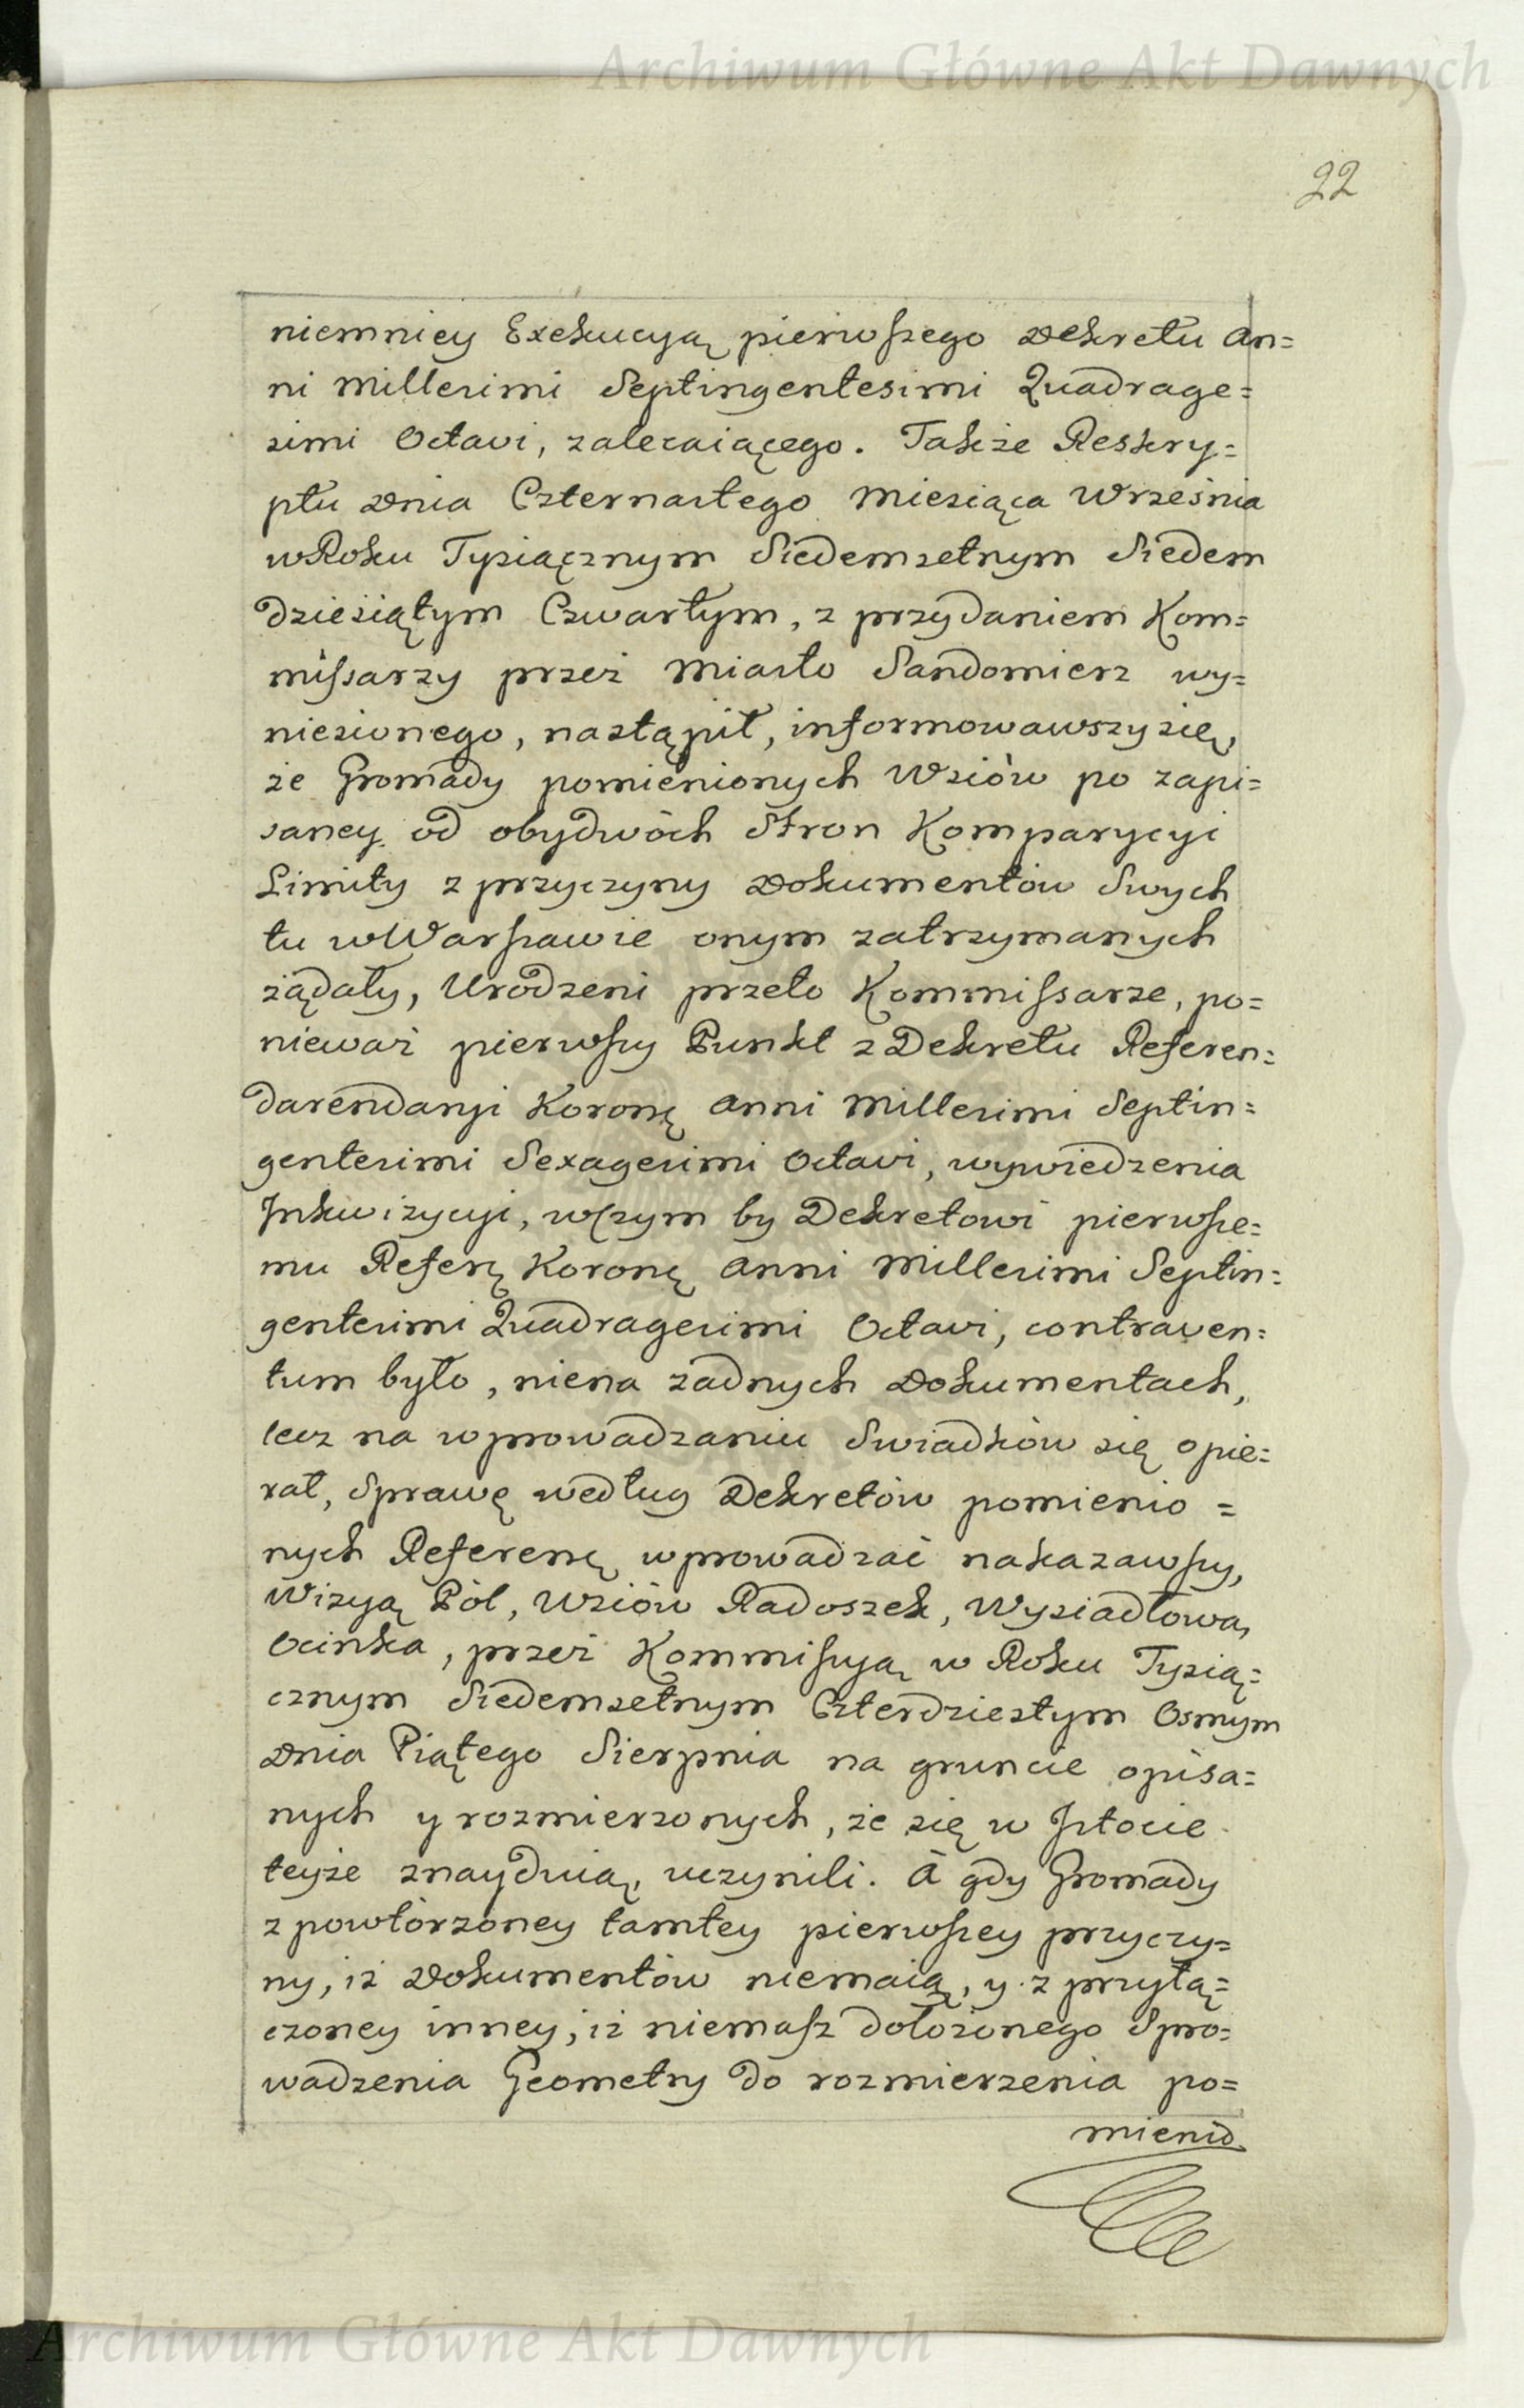 Archiwum Główne Akt Dawnych
22
niemniey Exekucyą pierwszego Dekretu An=
ni Millesimi Septingentesimi Quadrage=
simi Octavi, zalecaiącego. Także Reskry=
ptu Dnia Czternastego Miesiąca Września
w Roku Tysiącznym Siedemsetnym Siedem
dziesiątym Czwartym, z przydaniem Kom=
missarzy przez Miasto Sandomierz wy=
niesionego, nastąpił, informowawszy się,
że Gromady pomienionych Wsiów po zapi=
saney od obydwóch Stron Komparycyi
Limity z przyczyny Dokumentów Swych
tu w Warszawie onym zatrzymanych
żądały, Urodzeni przeto Kommissarze, po=
nieważ pierwszy Punkt z Dekretu Referen=
darendaryi Koronę Anni Millesimi Septin=
gentesimi Sexagesimi Octavi, wywiedzenia
Inkwizycyi, w czym by Dekretowi pierwsze=
mu Referę Koronę Anni Millesimi Septin=
gentesimi Quadragesimi Octavi, contraven=
tum było, nie na żadnych Dokumentach,
lecz na wprowadzaniu Swiadków się opie=
rał, Sprawę według Dekretów pomienio=
nych Referenę wprowadzać nakazawszy,
Wizyą Pól, Wsiów Radoszek, Wysiadłowa,
Ocinka, przez Kommissyą w Roku Tysią=
cznym Siedemsetnym Czterdziestym Osmym
Dnia Piątego Sierpnia na gruncie opisa=
nych y rozmierzonych, że się w Istocie
teyże znayduią, uczynili. A gdy Gromady
z powtórzoney tamtey pierwszey przyczy=
ny, iż Dokumentów niemaią, y z przyłą=
czoney inney, iż niemasz dołożonego Spro=
wadzenia Geometry do rozmierzenia po=
mienio
Archiwum Główne Akt Dawnych